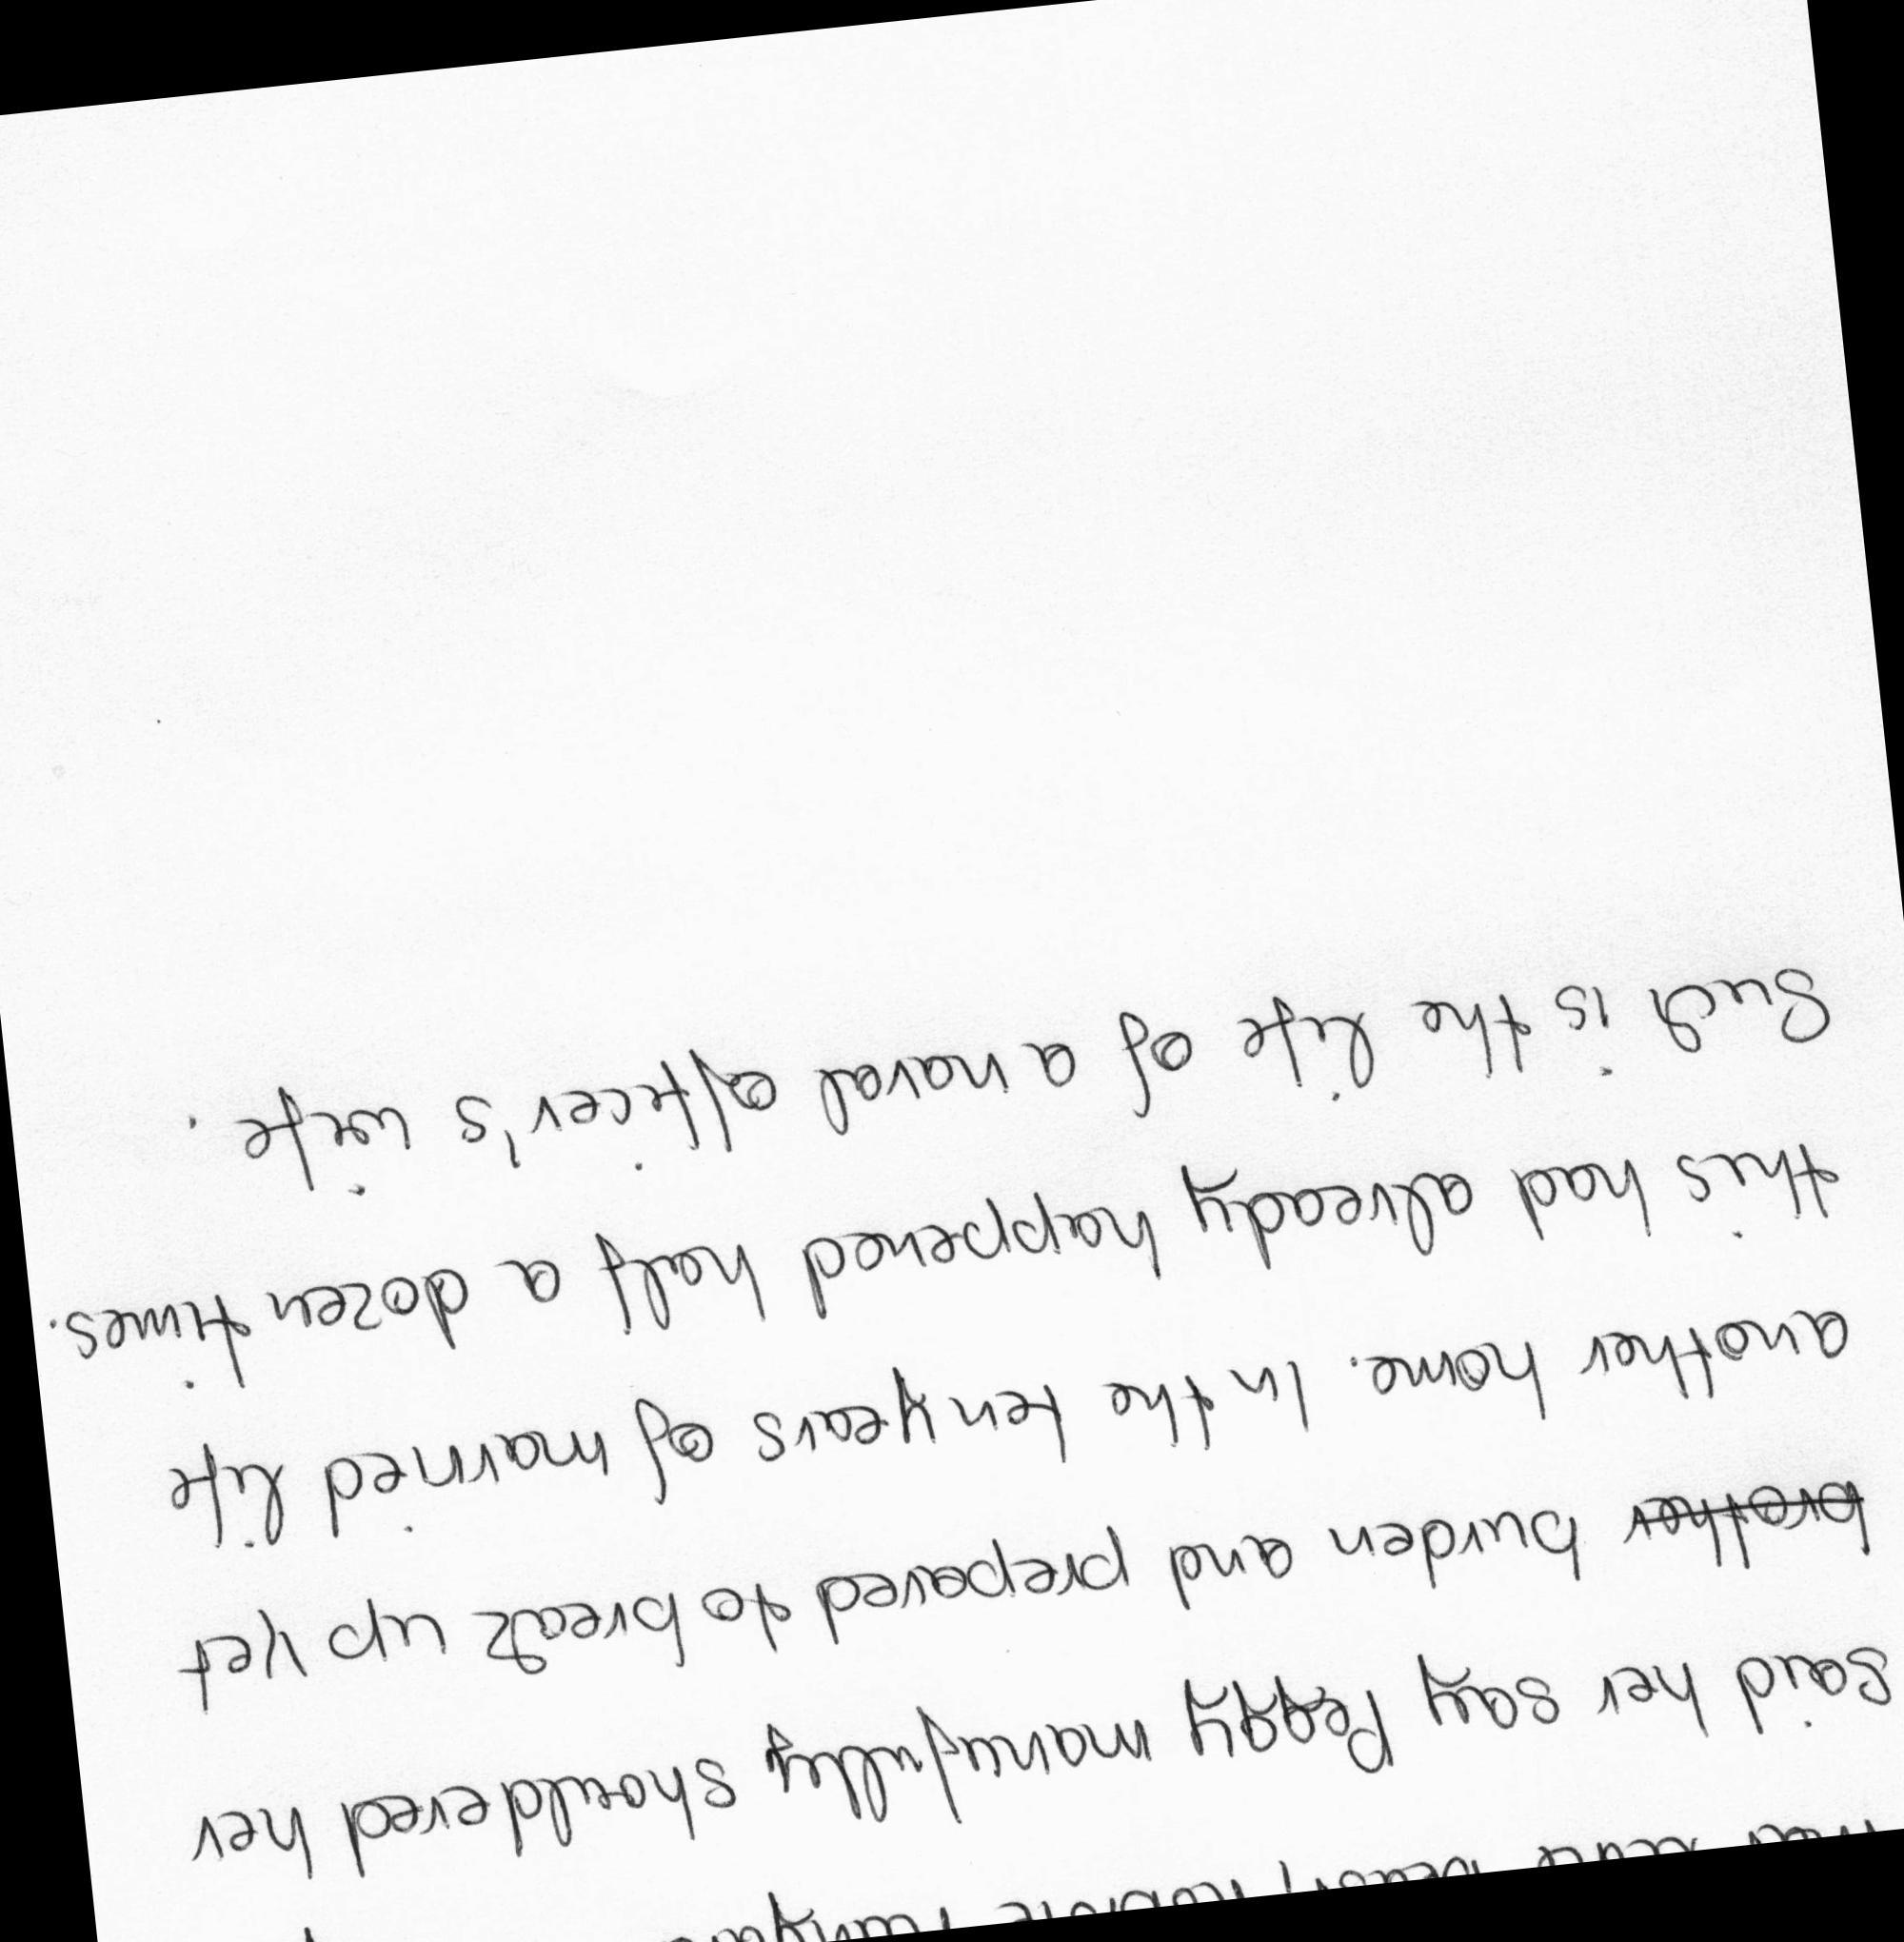 said her say Peggy manfully shouldered her
brother burden and prepared to break up yet
another home. In the ten years of married life
this had already happened half a dozen times.
Such is the life of a naval officer's wife.